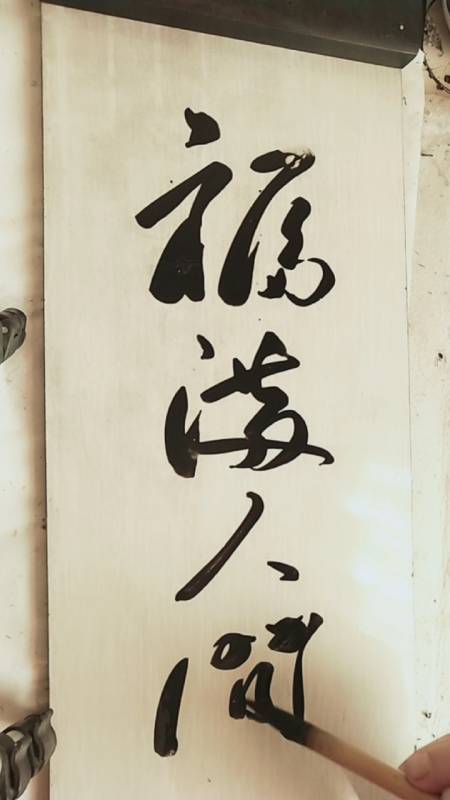 福滿人間